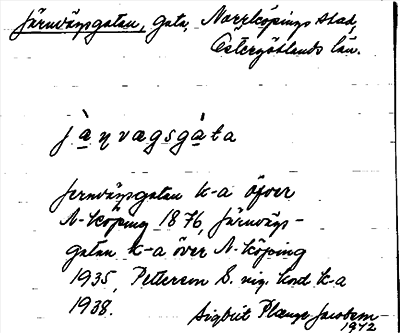 Järnvägsgatan, gata, Norrköpings stad,
Östergötlands län.
jà̱ṇvægsgà̱ta
Jernvägsgatan k-a öfver
N-köping 1876, Järnvägs-
gatan k-a över N-köping
1935, Petterson S. k-a
1938.
Sigbrit Plænge Jacobson
1972